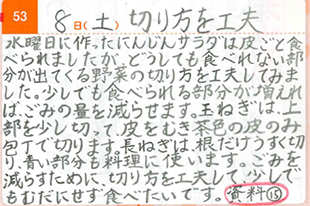 53
8日(土) 切り方を工夫
水曜日に作ったにんじんサラダは皮ごと食
べられましたが、どうしても食べれない部分
が出てくる野菜の切り方を工夫してみま
した。少しでも食べられる部分が増えれ
ばごみの量を減らせます。玉ねぎは、上
部を少し切って、皮をむき茶色の皮のみ
包丁で切ります。長ねぎは、根だけうすく切
り、青い部分も料理に使います。ごみを
減らすために、切り方を工夫して、少しで
もむだにせず食べたいです。資料⑮